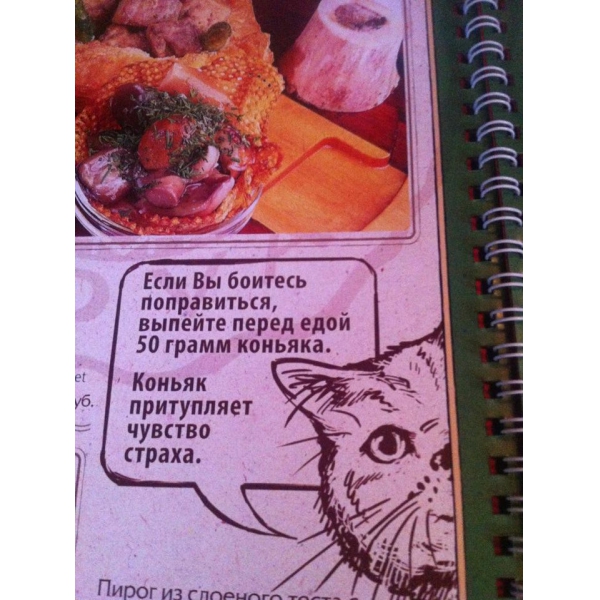 Если Вы боитесь
поправиться,
выпейте перед едой
50 грамм коньяка.
Коньяк
притупляет
чувство
страха.
et
уб.
Пирог из слоеного теста с